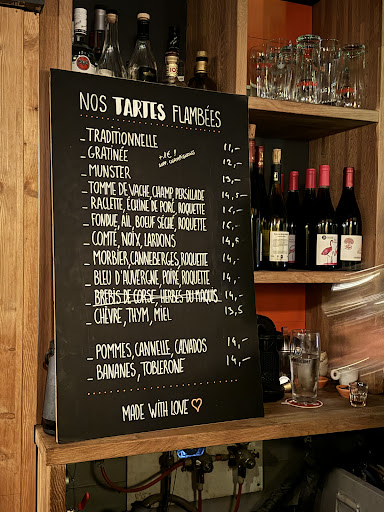 NOS TARTES FLAMBÉES
_ TRADITIONNELLE 11,-
_ GRATINÉE +1€ ! 12,-
_ MUNSTER 13,-
_ TOMME DE VACHE, CHAMP, PERSILLADE 14,5
_ RACLETTE, ÉCHINE DE PORC, ROQUETTE
_ FONDUE, AIL, BOEUF SÉCHÉ, ROQUETTE
_ COMTÉ, NOIX, LARDONS 14,5
_ MORBIER, CANNEBERGES, ROQUETTE 14,-
_ BLEU D'AUVERGNE, POIRE, ROQUETTE 14,-
_ BREBIS DE CORSE, HERBES DU MAQUIS 14,-
_ CHÈVRE, THYM, MIEL 13,5
_ POMMES, CANNELLE, CALVADOS 14,-
_ BANANES, TOBLERONE 14,-
MADE WITH LOVE ♡